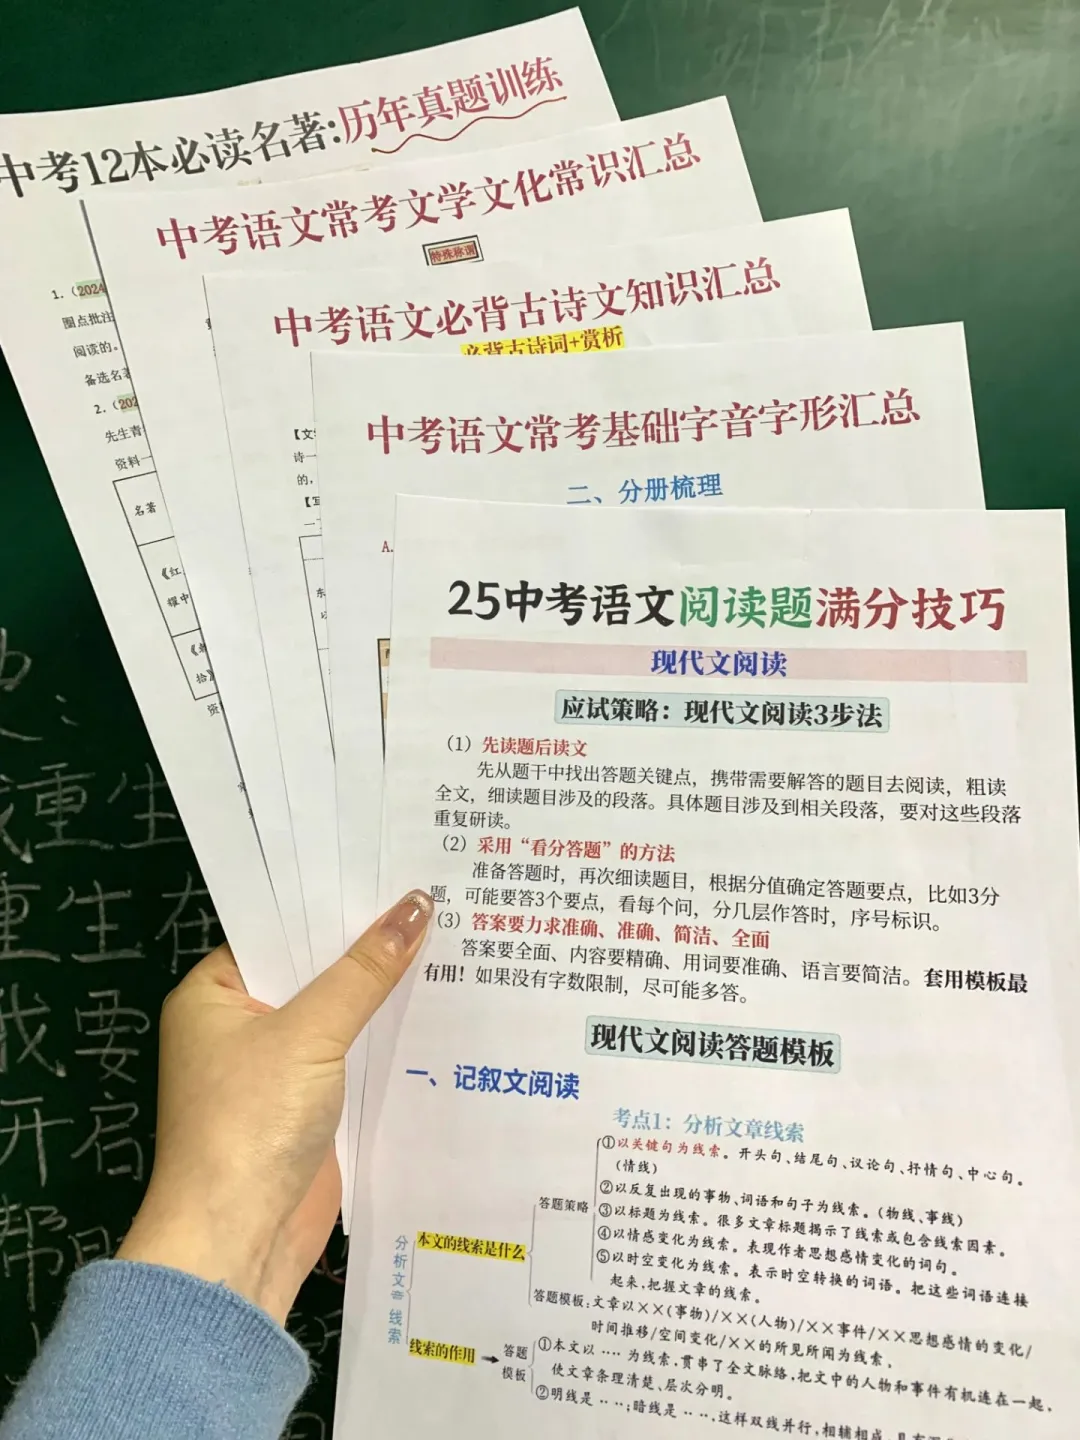 中考12本必读名著:历年真题训练
1.(2024
圈点批注
阅读的。
备选名著
2.(202
先生青
资料一
名著
《红
耀中
拾
资
中考语文常考文学文化常识汇总
特殊称谓
中考语文必背古诗文知识汇总
必背古诗词+赏析
诗一
的,
中考语文常考基础字音字形汇总
二、分册梳理
A.
25中考语文阅读题满分技巧
现代文阅读
应试策略：现代文阅读3步法
（1）先读题后读文
先从题干中找出答题关键点，携带需要解答的题目去阅读，粗读
全文，细读题目涉及的段落。具体题目涉及到相关段落，要对这些段落
重复研读。
（2）采用“看分答题”的方法
准备答题时，再次细读题目，根据分值确定答题要点，比如3分
题，可能要答3个要点，看每个问，分几层作答时，序号标识。
（3）答案要力求准确、准确、简洁、全面
答案要全面、内容要精确、用词要准确、语言要简洁。套用模板最
有用！如果没有字数限制，尽可能多答。
现代文阅读答题模板
一、记叙文阅读
考点1：分析文章线索
分析文章线索
本文的线索是什么
答题策略
①以关键句为线索。开头句、结尾句、议论句、抒情句、中心句。
(情线)
②以反复出现的事物、词语和句子为线索。(物线、事线)
③以标题为线索。很多文章标题揭示了线索或包含线索因素。
④以情感变化为线索。表现作者思想感情变化的词句。
⑤以时空变化为线索。表示时空转换的词语。把这些词语连接
起来,把握文章的线索。
答题模板:文章以××(事物)/××(人物)/××事件/××思想感情的变化/
时间推移/空间变化/××的所见所闻为线索。
线索的作用
答题
模板
①本文以····为线索,贯串了全文脉络,把文中的人物和事件有机连在一起,
使文章条理清楚、层次分明。
②明线是····;暗线是····,这样双线并行,相辅相成
重生
重生在
我要
开启